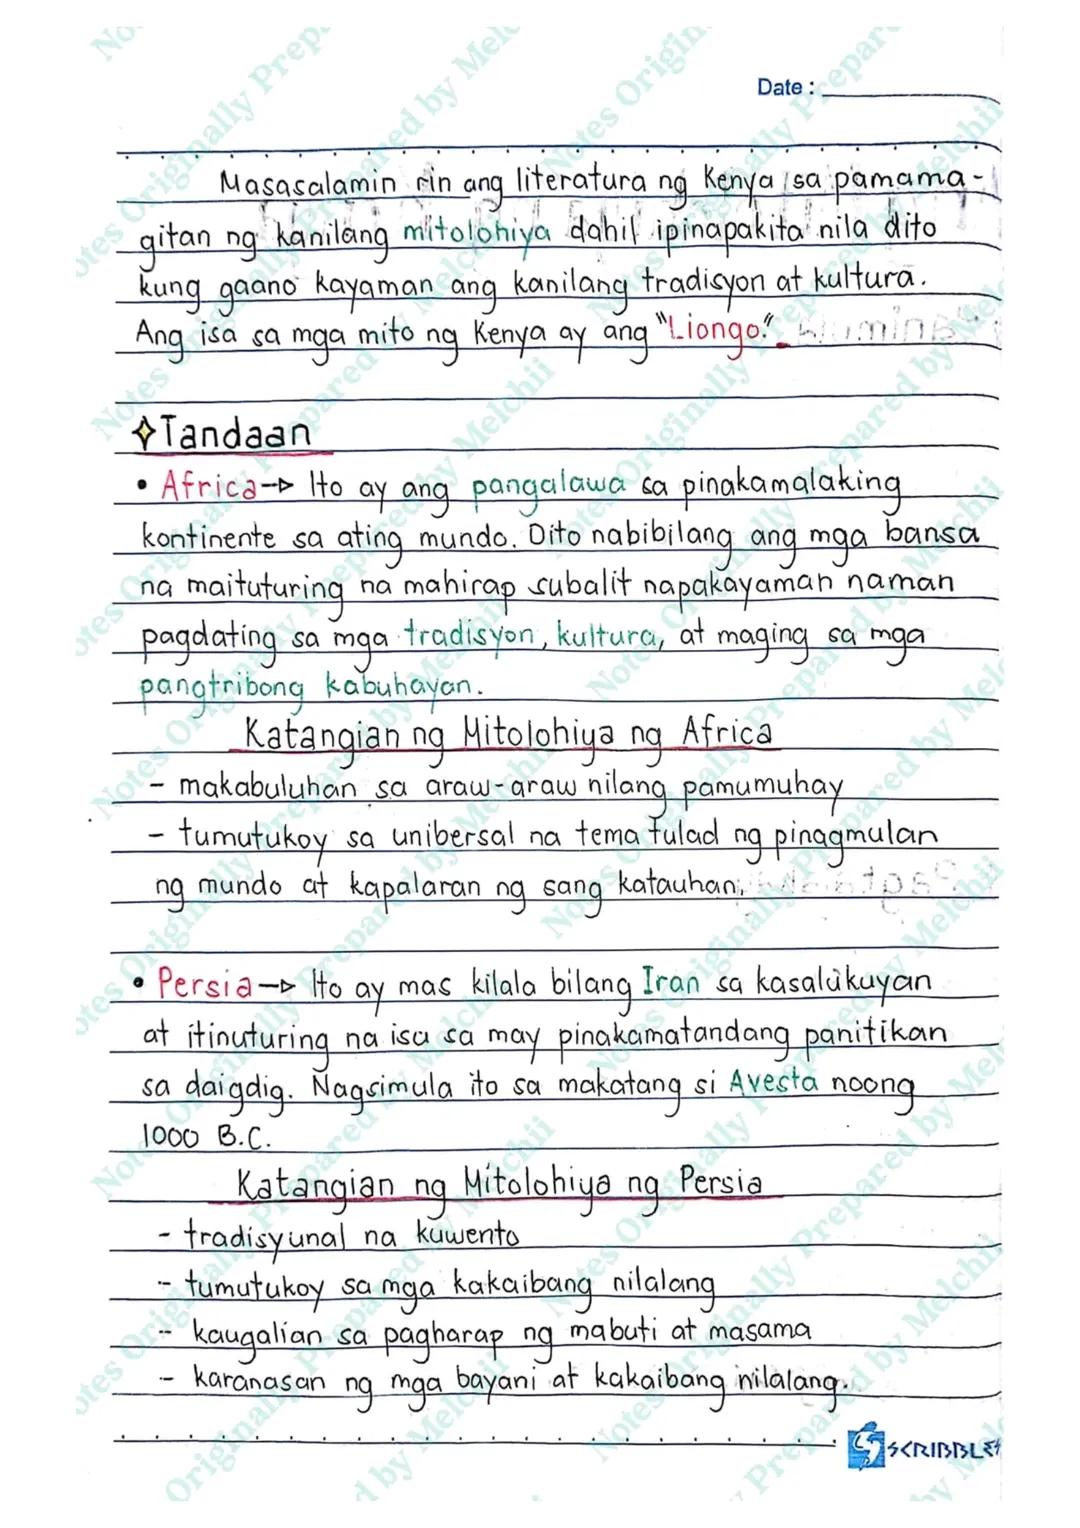 Date :
Masasalamin rin ang literatura ng Kenya sa pamama-
gitan ng kanilang mitolohiya dahil ipinapakita nila dito
kung gaano kayaman ang kanilang tradisyon at kultura.
Ang isa sa mga mito ng Kenya ay ang "Liongo."
Tandaan
• Africa→ Ito ay ang pangalawa sa pinakamalaking
kontinente sa ating mundo. Dito nabibilang ang mga bansa
na maituturing na mahirap subalit napakayaman naman
pagdating sa mga tradisyon, kultura, at maging sa mga
pangtribong kabuhayan.
Katangian ng Mitolohiya ng Africa
- makabuluhan sa araw-araw nilang pamumuhay
- tumutukoy sa unibersal na tema tulad ng pinagmulan
ng mundo at kapalaran ng sang katauhan.
• Persia→ Ito ay mas kilala bilang Iran sa kasalukuyan
at itinuturing na isa sa may pinakamatandang panitikan
sa daigdig. Nagsimula ito sa makatang si Avesta noong
1000 B.C.
Katangian ng Mitolohiya ng Persia
- tradisyunal na kuwento
- tumutukoy sa mga kakaibang nilalang
- kaugalian sa pagharap ng mabuti at masama
- karanasan ng mga bayani at kakaibang nilalang.
SCRIBBLES
Notes Originally Prepared by Melchii